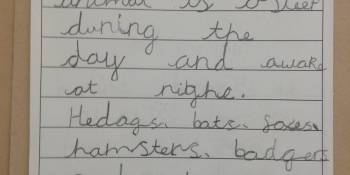 animal is a sleep
duning the
day and awake
at nighe.
Hedogs, bats, foxes,
hamsters, badgers